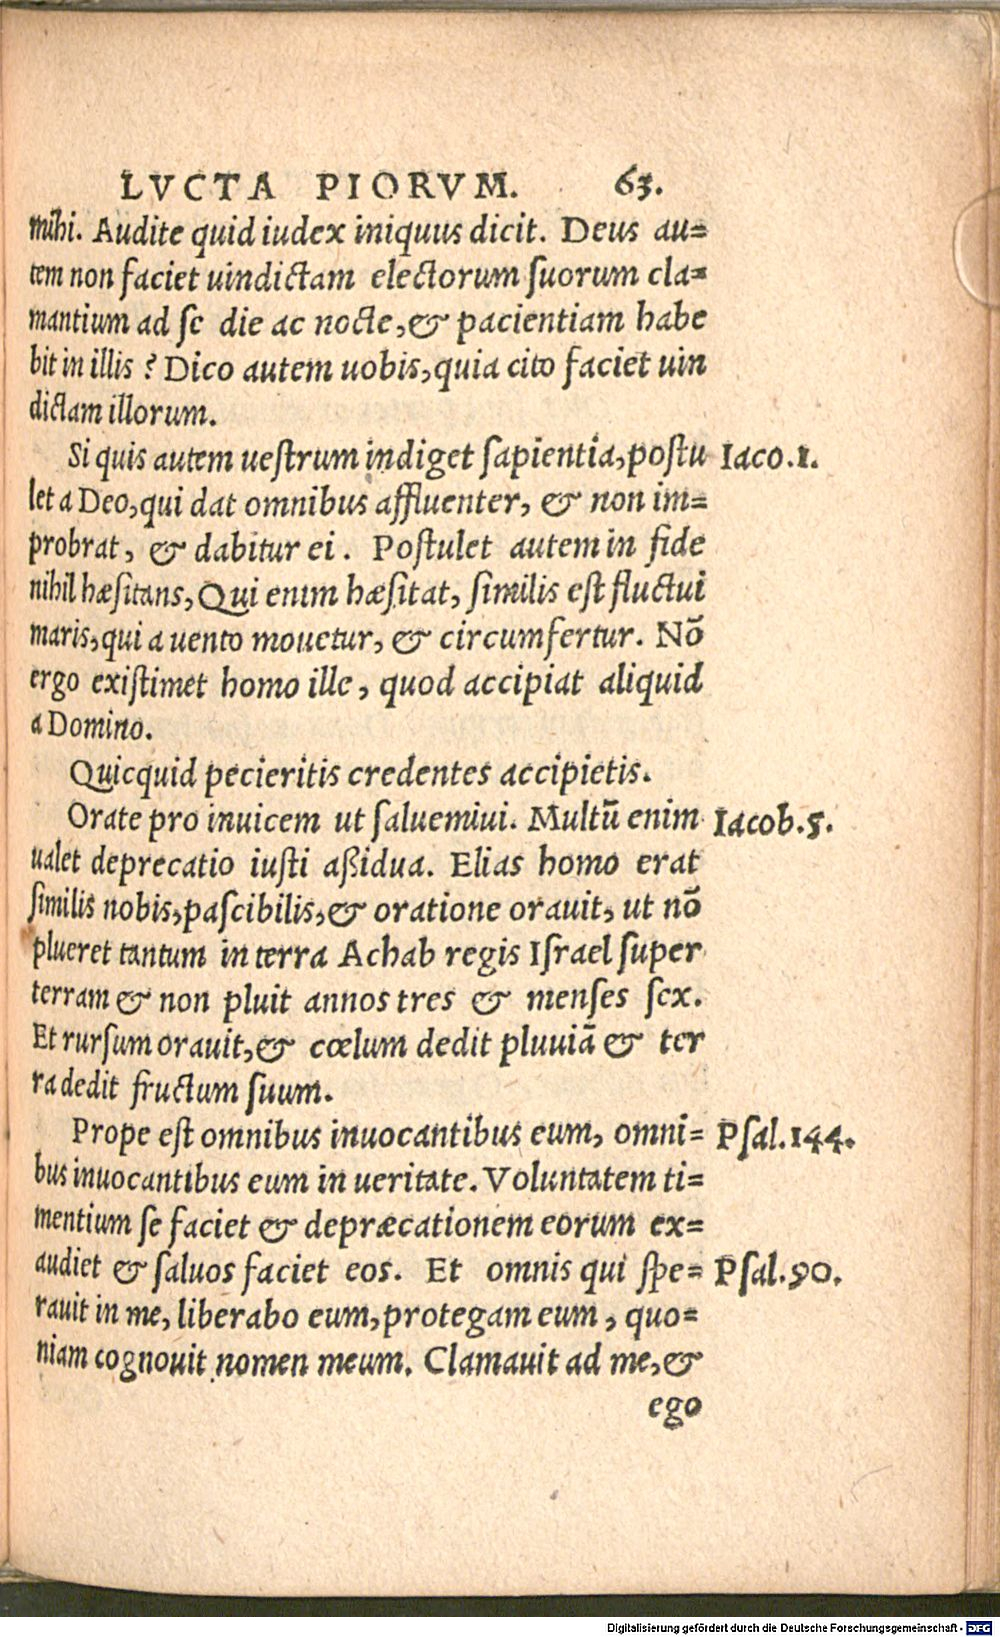 LVCTA PIORVM. 63.
mihi. Audite quid iudex iniquus dicit. Deus au=
tem non faciet uindictam electorum ſuorum cla=
mantium ad ſe die ac nocte, & pacientiam habe
bit in illis ? Dico autem uobis, quia cito faciet uin
dictam illorum.
Si quis autem ueſtrum indiget ſapientia, poſtu Iaco.1.
let a Deo, qui dat omnibus affluenter, & non im=
probrat, & dabitur ei. Poſtulet autem in fide
nihil hæſitans, Qui enim hæſitat, ſimilis eſt fluctui
maris, qui a uento mouetur, & circumfertur. Nō
ergo exiſtimet homo ille, quod accipiat aliquid
a Domino.
Quicquid pecieritis credentes accipietis.
Orate pro inuicem ut ſaluemiui. Multū enim Iacob.5.
ualet deprecatio iuſti aßidua. Elias homo erat
ſimilis nobis, paſcibilis, & oratione orauit, ut nō
plueret tantum in terra Achab regis Iſrael ſuper
terram & non pluit annos tres & menſes ſex.
Et rurſum orauit, & cœlum dedit pluuiā & ter
ra dedit fructum ſuum.
Prope eſt omnibus inuocantibus eum, omni= Pſal.144.
bus inuocantibus eum in ueritate. Voluntatem ti=
mentium ſe faciet & depræcationem eorum ex=
audiet & ſaluos faciet eos. Et omnis qui ſpe= Pſal.90.
rauit in me, liberabo eum, protegam eum, quo=
niam cognouit nomen meum. Clamauit ad me, &
ego
Digitalisierung gefördert durch die Deutsche Forschungsgemeinschaft - DFG